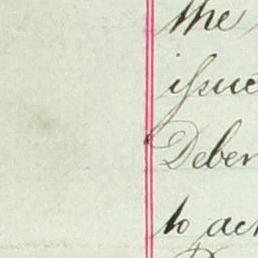 the
issue
Deben
to act